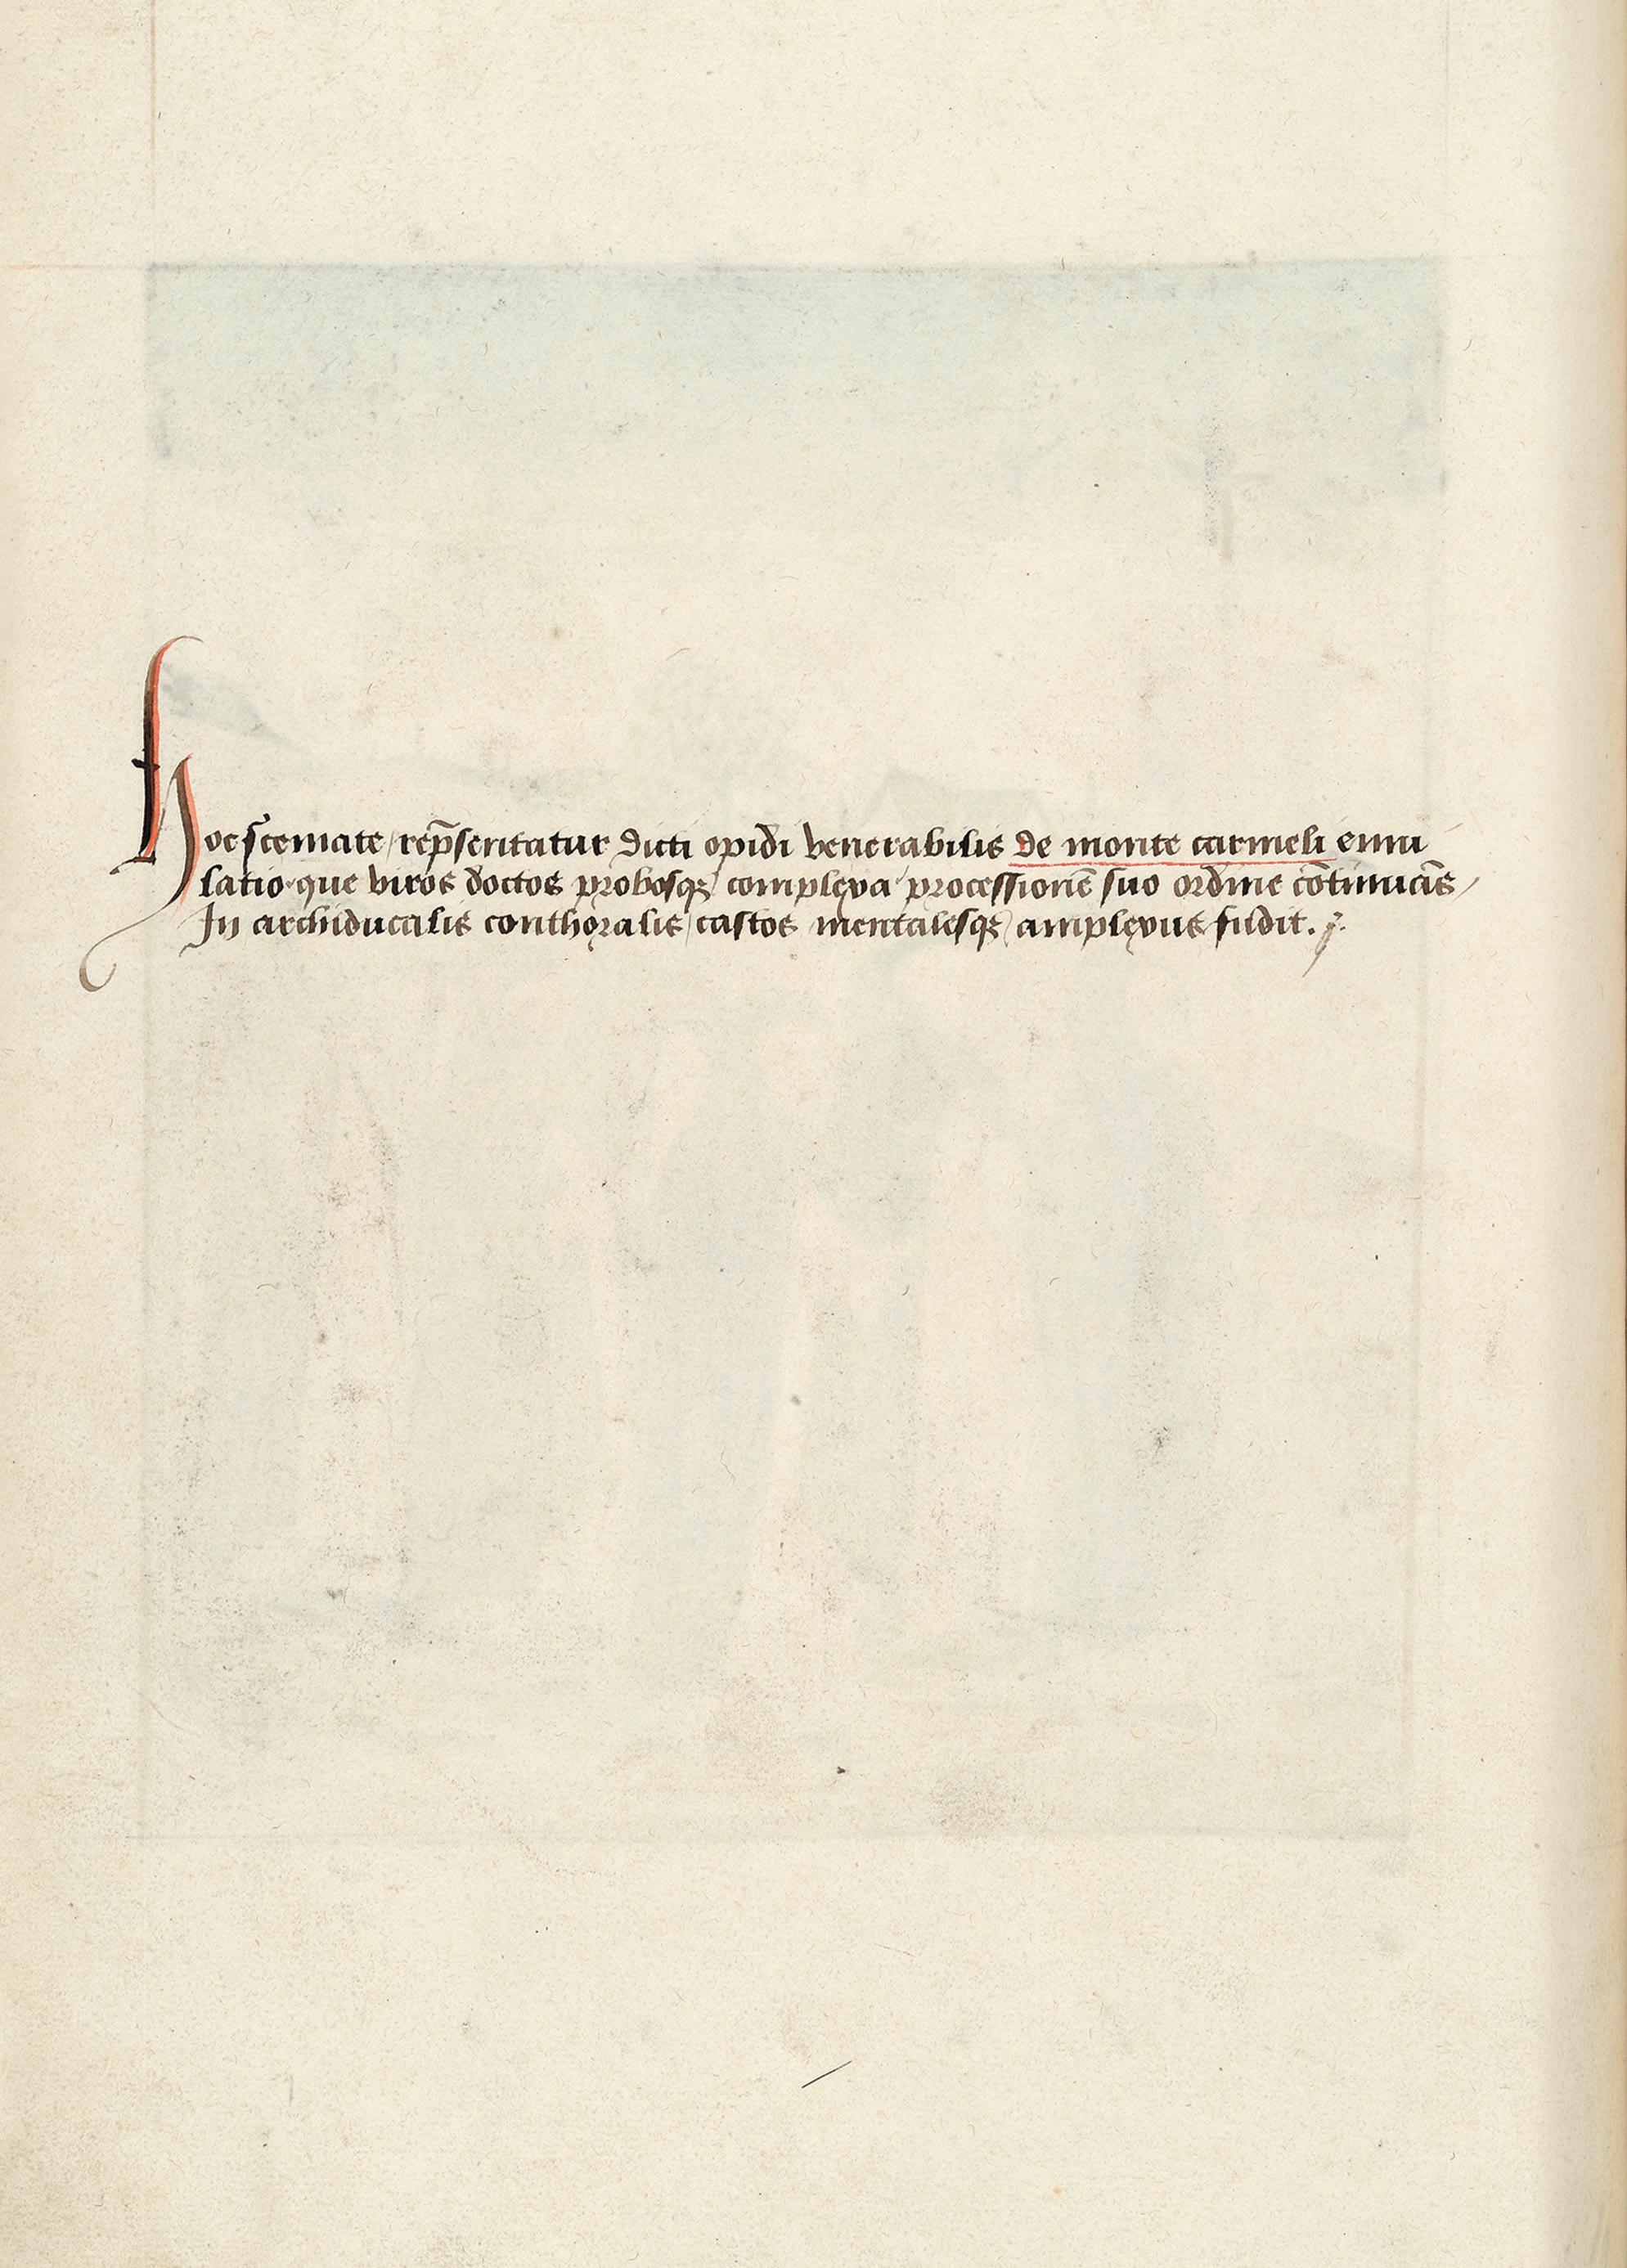 Hoc scemate / rep̄sentatur dicti opidi venerabilis de monte carmeli emu
latio · que viros doctos probosqꝫ complexa / processionē suo ordine cōtinuās /
In archiducalis conthoralis / castos mentalesqꝫ / amplexus fudit.